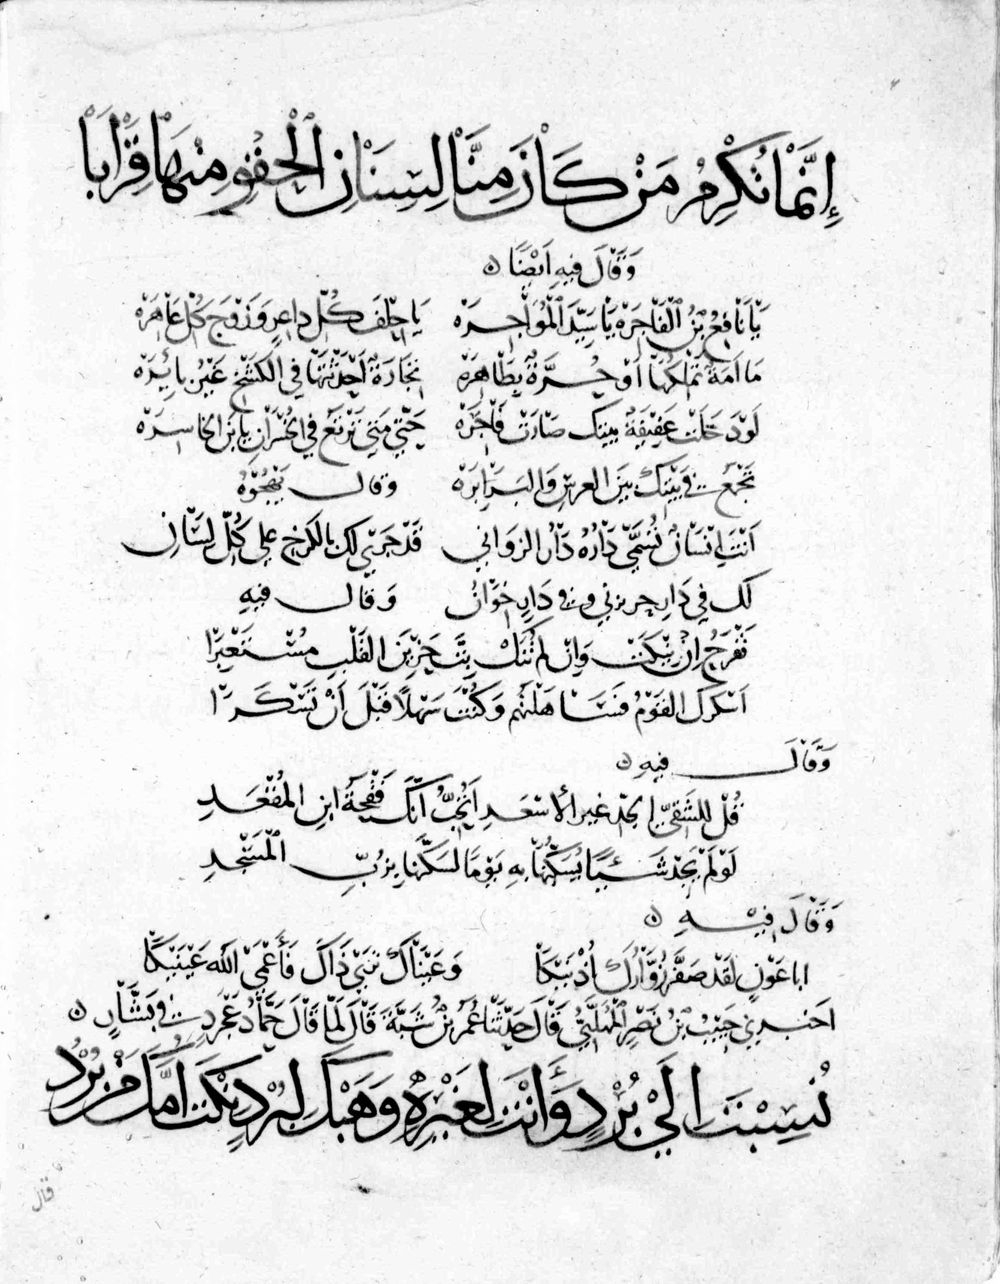 إِنَّمَا نُكْرِمُ مَنْ كَانَ مِنَّا لِسِنَانِ الْحِقْوِ مِنْهَا قِرَابَا
وَقَالَ فِيهِ اَيْضًا ۞
يَا نَافِعُ بْنُ الْفَاجِرَهْ يَا سَيِّدَ الْمُوَاجِرَهْ يَا حِلْفَ كُلِّ دَاعِرٍ وَزَوْجَ كُلِّ عَاهِرَهْ
مَا اَمَةٌ تَمْلِكُهَا اَوْ حُرَّةٌ بِطَاهِرَهْ تِجَارَةٌ اَحْدَثْتَهَا فِي الكَشْخِ غَيْرُ بَائِرَهْ
لَوْ دَخَلَتْ عَفِيفَةٌ بيتك صَارَتْ فَاجِرَهْ حَتَّى مَتَى تَرْتَعُ فِي الخُسْرَانِ يا بن الخَاسِرَهْ
تَجْمَعُ في بَيْتِكَ بَيْنَ العِرْسِ وَالبَرَابِرَهْ وَقَالَ يَهْجُوهُ
اَنْتَ اِنْسَانٌ تُسَمَّى دَارُهُ دَارَ الزَوَانِي قَدْ جَرَى لك بالكَرْخِ على كُلِّ لِسَانِ
لك فِي دَارٍ حِرٌ يزني وفي دَارٍ حِرَانُ وَقَالَ فِيهِ
تَفْرَحُ اِنْ نِيكَتْ وَاِنْ لَمْ تُنَكْ بِتَّ حَزِينَ القَلْبِ مُسْتَعْبِرَا
اَسْكَرَكَ القَوْمُ فَسَاهَلْتَهُم وَكُنْتَ سَهْلًا قَبْلَ اَنْ تَسْكَرَا
وَقَالَ فِيهِ ۞
قُلْ لِلشَّقِيِّ الجَدِّ غير الأسْعَدِ اَتُحِبُّ اَنَّكَ فَقْحَةُ ابْنِ المُقْعَدِ
لَوْ لَمْ يَجِدْ شَيْئًا يُسَكِّنُهَا بِهِ يَوْمًا لَسَكَّنَهَا بِزُبِّ الْمَسْجِدِ
وَقَالَ فِيهِ ۞
ابا عَوْنٍ لَقَد صَفَّرَ زُوَّارُكَ اُذْنَيْكَا وَعَيْنَاكَ تَرَى ذَاكَ فَاَعْمَى الله عَيْنَيْكَا
اَخْبَرَنِي حَبِيبُ بْنُ نَصْرٍ الْمُهَلَّبِيُّ قَالَ حَدَّثَنَا عُمَرُ بْنُ شَبَّةَ قَالَ لَمَّا قَالَ حَمَّادُ عَجْرَدٍ في بَشَّارٍ ۞
نُسِبْتَ اِلَى بُرْدٍ وَأَنْتَ لِغَيْرِهِ وَهَبْكَ لِبُرْدٍ نِكْتَ اُمَّكَ مَنْ بُرْدُ
قال